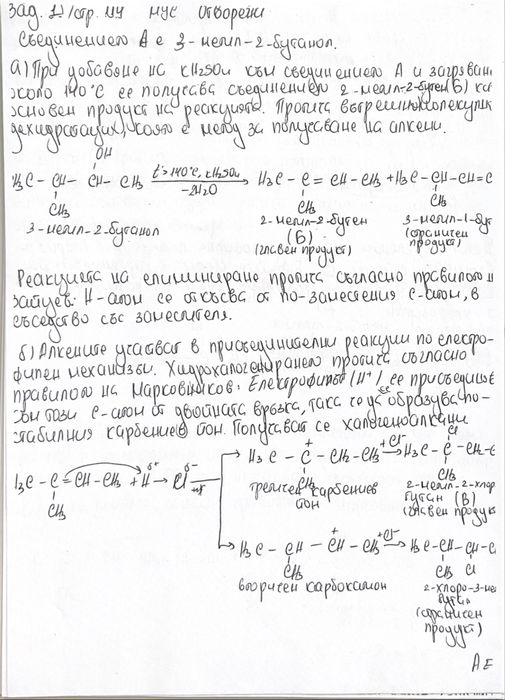 Зад. 2/стр. 114 МУС отворени
Съединението А е 3-метил-2-бутанол.
а) При добавяне на кH₂SO₄ към съединението А и загряване
около 140°C се получава съединението 2-метил-2-бутен(Б) ка
основен продукт на реакцията. Протича вътрешномолекулн
дехидратация, която е метод за получаване на алкени.
OH
H₃C – CH – CH – CH₃ t°>140°C, кH₂SO₄ -2H₂O → H₃C – C = CH – CH₃ + H₃C – CH – CH = C
CH₃ CH₃ CH₃
3-метил-2-бутанол 2-метил-2-бутен 3-метил-1-бут
(Б) (страничен
(главен продукт) продукт)
Реакцията на елиминиране протича съгласно правилото н
Зайцев. H-атом се откъсва от по-заместения C-атом, в
съседство със заместителя.
б) Алкените участват в присъединителни реакции по електро-
филен механизъм. Хидрохалогенирането протича съгласно
правилото на Марковников. Електрофилът (H⁺) се присъединя
към този C-атом от двойната връзка, така че да се образува по-
стабилния карбениев йон. Получават се халогеноалкани
H₃C – C = CH – CH₃ + H^δ+ → Cl^δ-
CH₃
H₃C – C⁺ – CH₂ – CH₃ +Cl⁻ → H₃C – C – CH₂ – C
CH₃ Cl CH₃
третичен карбениев
йон
2-метил-2-хлор
бутан (В)
(главен продукт
H₃C – CH – CH⁺ – CH₃ +Cl⁻ → H₃C – CH – CH – C
CH₃ CH₃ Cl
вторичен карбокатион
2-хлоро-3-ме
бутан
(страничен
продукт)
AE